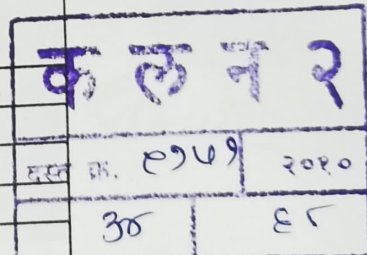 क ल न २
दस्त क्र. ९१५१ २०१०
३४ ६८